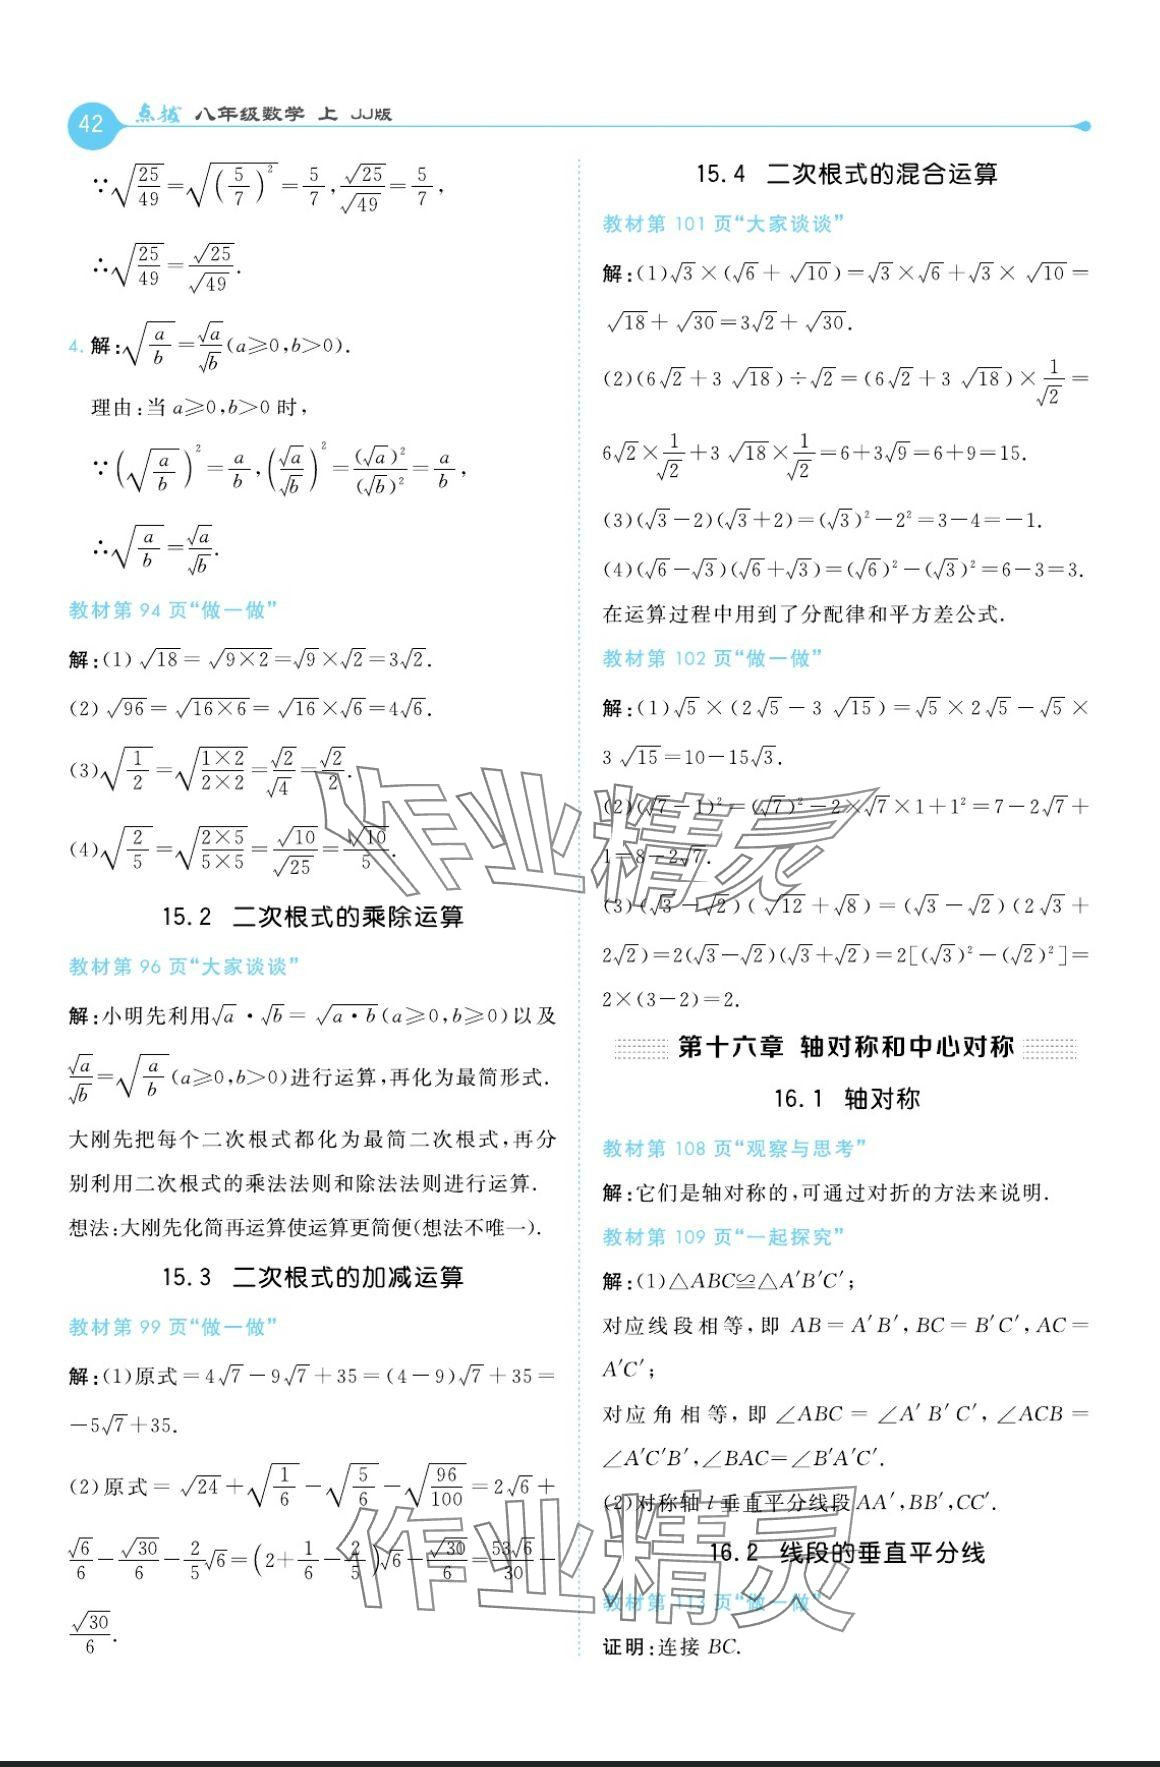 42 点拨 八年级数学 上 JJ版
∵√(25/49)=√((5/7)²)=5/7,√25/√49=5/7,
∴√(25/49)=√25/√49.
4. 解:√(a/b)=√a/√b(a≥0,b>0).
理由:当a≥0,b>0时,
∵(√(a/b))²=a/b,(√a/√b)²=(√a)²/(√b)²=a/b,
∴√(a/b)=√a/√b.
教材第 94 页“做一做”
解:(1)√18=√(9×2)=√9×√2=3√2.
(2)√96=√(16×6)=√16×√6=4√6.
(3)√(1/2)=√((1×2)/(2×2))=√2/√4=√2/2.
(4)√(2/5)=√((2×5)/(5×5))=√10/√25=√10/5.
15.2 二次根式的乘除运算
教材第 96 页“大家谈谈”
解:小明先利用√a·√b=√(a·b)(a≥0,b≥0)以及
√a/√b=√(a/b)(a≥0,b>0)进行运算,再化为最简形式.
大刚先把每个二次根式都化为最简二次根式,再分
别利用二次根式的乘法法则和除法法则进行运算.
想法:大刚先化简再运算使运算更简便(想法不唯一).
15.3 二次根式的加减运算
教材第 99 页“做一做”
解:(1)原式=4√7-9√7+35=(4-9)√7+35=
-5√7+35.
(2)原式=√24+√(1/6)-√(5/6)-√(96/100)=2√6+
√6/6-√30/6-2/5√6=(2+1/6-2/5)√6-√30/6=53√6/30-
√30/6.
15.4 二次根式的混合运算
教材第 101 页“大家谈谈”
解:(1)√3×(√6+√10)=√3×√6+√3×√10=
√18+√30=3√2+√30.
(2)(6√2+3√18)÷√2=(6√2+3√18)×1/√2=
6√2×1/√2+3√18×1/√2=6+3√9=6+9=15.
(3)(√3-2)(√3+2)=(√3)²-2²=3-4=-1.
(4)(√6-√3)(√6+√3)=(√6)²-(√3)²=6-3=3.
在运算过程中用到了分配律和平方差公式.
教材第 102 页“做一做”
解:(1)√5×(2√5-3√15)=√5×2√5-√5×
3√15=10-15√3.
(2)(√7-1)²=(√7)²-2×√7×1+1²=7-2√7+
1=8-2√7.
(3)(√3-√2)(√12+√8)=(√3-√2)(2√3+
2√2)=2(√3-√2)(√3+√2)=2[(√3)²-(√2)²]=
2×(3-2)=2.
第十六章 轴对称和中心对称
16.1 轴对称
教材第 108 页“观察与思考”
解:它们是轴对称的,可通过对折的方法来说明.
教材第 109 页“一起探究”
解:(1)△ABC≌△A′B′C′;
对应线段相等,即 AB=A′B′,BC=B′C′,AC=
A′C′;
对应角相等,即∠ABC=∠A′B′C′,∠ACB=
∠A′C′B′,∠BAC=∠B′A′C′.
(2)对称轴l垂直平分线段AA′,BB′,CC′.
16.2 线段的垂直平分线
教材第 113 页“做一做”
证明:连接 BC.
作业精灵
作业精灵